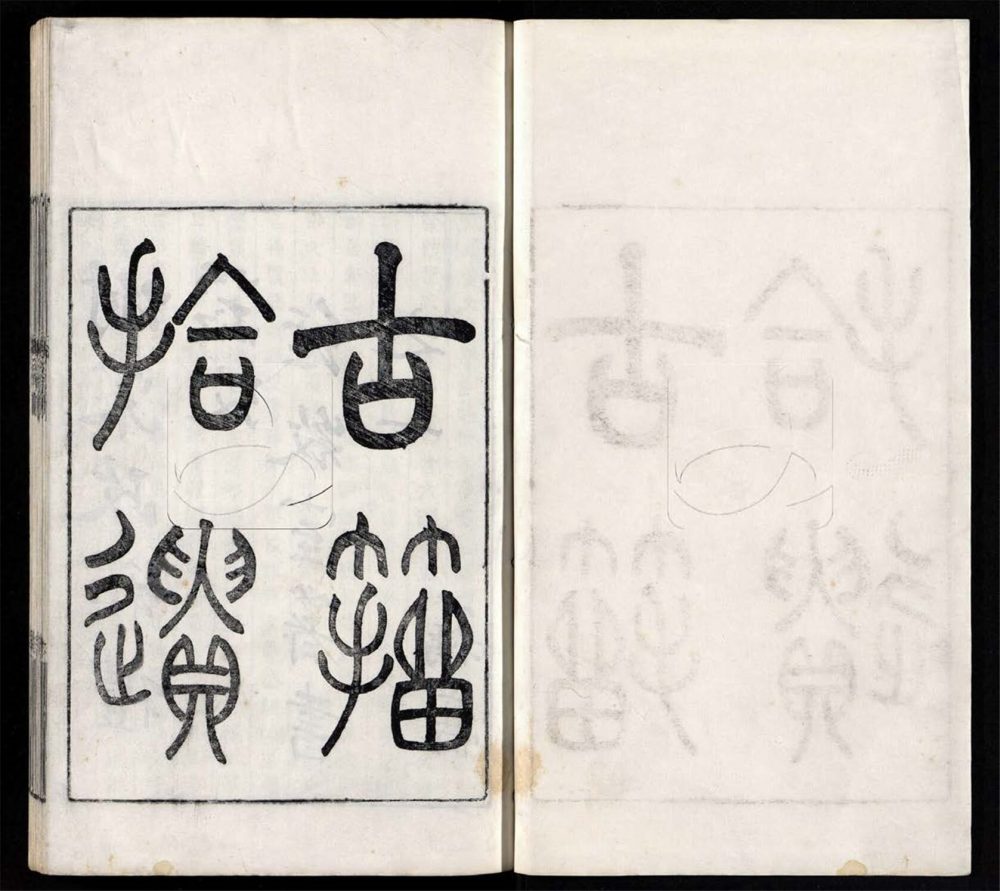 古籀
拾遺